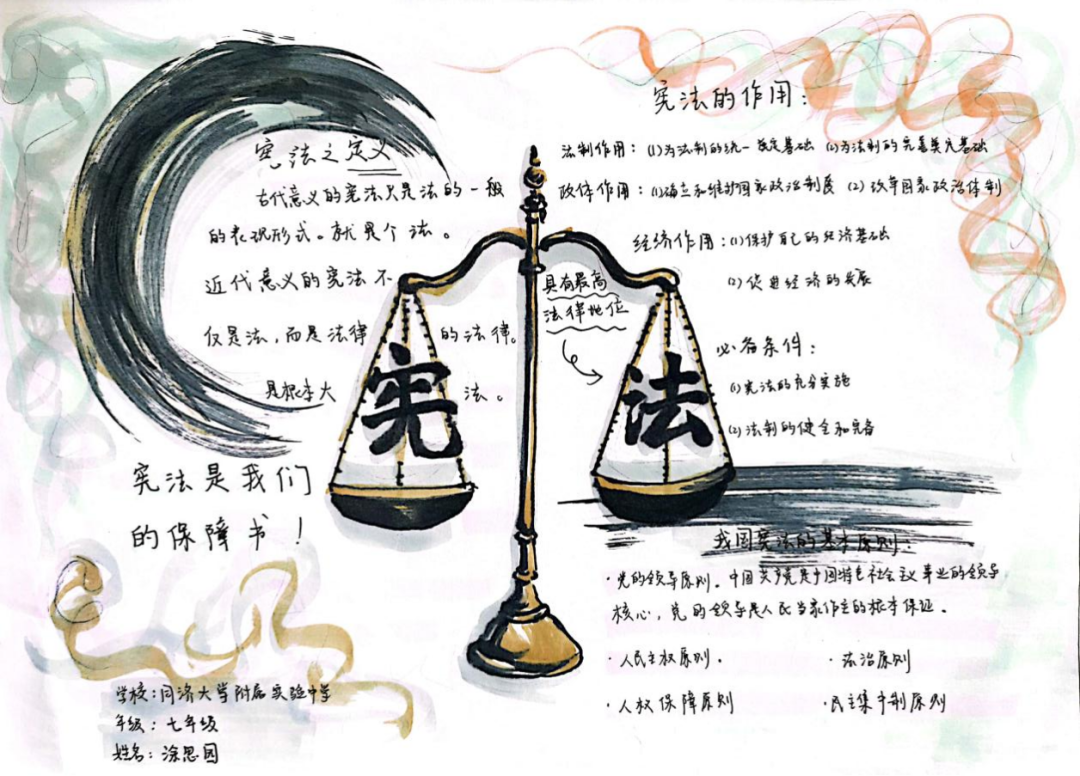 宪法之定义
古代意义的宪法只是法的一般
的表现形式。就是个法。
近代意义的宪法不
仅是法,而是法律的法律。
是根本大法。
宪法是我们
的保障书!
学校:同济大学附属实验中学
年级:七年级
姓名:涂思园
宪法
具有最高
法律地位
宪法的作用:
法制作用:(1)为法制的统一奠定基础 (2)为法制的完善奠定基础
政体作用:(1)确立和维护国家政治制度 (2)改革国家政治体制
经济作用:(1)保护自己的经济基础
(2)促进经济的发展
必备条件:
(1)宪法的充分实施
(2)法制的健全和完备
我国宪法的基本原则:
·党的领导原则。中国共产党是中国特色社会主义事业的领导
核心,党的领导是人民当家作主的根本保证。
·人民主权原则. ·法治原则
·人权保障原则 ·民主集中制原则